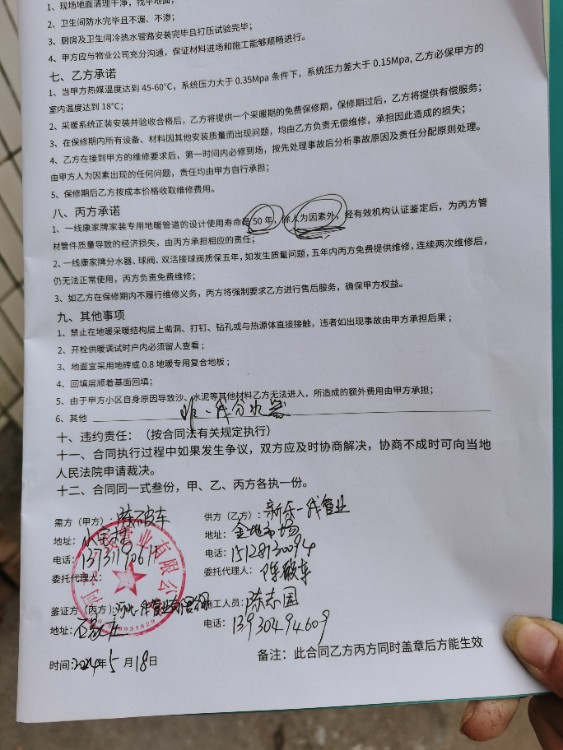 1、现场地面清理干净，找平地面；
2、卫生间防水完毕且不漏、不渗；
3、厨房及卫生间冷热水管路安装完毕且打压试验完毕；
4、甲方应与物业公司充分沟通，保证材料进场和施工能够顺畅进行。
七、乙方承诺
1、当甲方热媒温度达到 45-60℃，系统压力大于 0.35Mpa 条件下，系统压力差大于 0.15Mpa, 乙方必保甲方的
室内温度达到 18℃；
2、采暖系统正装安装并验收合格后，乙方将提供一个采暖期的免费保修期，保修期过后，乙方将提供有偿服务；
3、在保修期内所有设备、材料因其他安装质量而出现问题，均由乙方负责无偿维修，承担因此造成的损失；
4、乙方在接到甲方的维修要求后，第一时间内必修到场，按先处理事故后分析事故原因及责任分配原则处理。
由甲方人为因素出现的任何问题，责任均由甲方自行承担；
5、保修期后乙方按成本价格收取维修费用。
八、丙方承诺
1、一线康家牌家装专用地暖管道的设计使用寿命是 50 年，除人为因素外，经有效机构认证鉴定后，为丙方管
材管件质量导致的经济损失，由丙方承担相应的责任；
2、一线康家牌分水器、球阀、双活接球阀质保五年,如发生质量问题,五年内丙方免费提供维修，连续两次维修后，
仍无法正常使用，丙方负责免费维修；
3、如乙方在保修期内不履行维修义务，丙方将强制要求乙方进行售后服务，确保甲方权益。
九、其他事项
1、禁止在地暖采暖结构层上凿洞、打钉、钻孔或与热源体直接接触，违者如出现事故由甲方承担后果；
2、开栓供暖调试时户内必须留人查看；
3、地面宜采用地砖或 0.8 地暖专用复合地板；
4、回填层顺着基面回填；
5、由于甲方小区自身原因导致沙、水泥等其他材料乙方无法进入，所造成的额外费用由甲方承担；
6、其他 分水器
十、违约责任：（按合同法有关规定执行）
十一、合同执行过程中如果发生争议，双方应及时协商解决，协商不成时可向当地
人民法院申请裁决。
十二、合同同一式叁份，甲、乙、丙方各执一份。
需方（甲方）： 供方（乙方）：新乐一线管业
地址： 地址：金地市场
电话： 电话：15128130094
委托代理人： 委托代理人：陈敬车
鉴证方（丙方）： 施工人员：陈志国
地址：石家庄 电话：13930494609
时间：2024年5月18日
备注：此合同乙方丙方同时盖章后方能生效